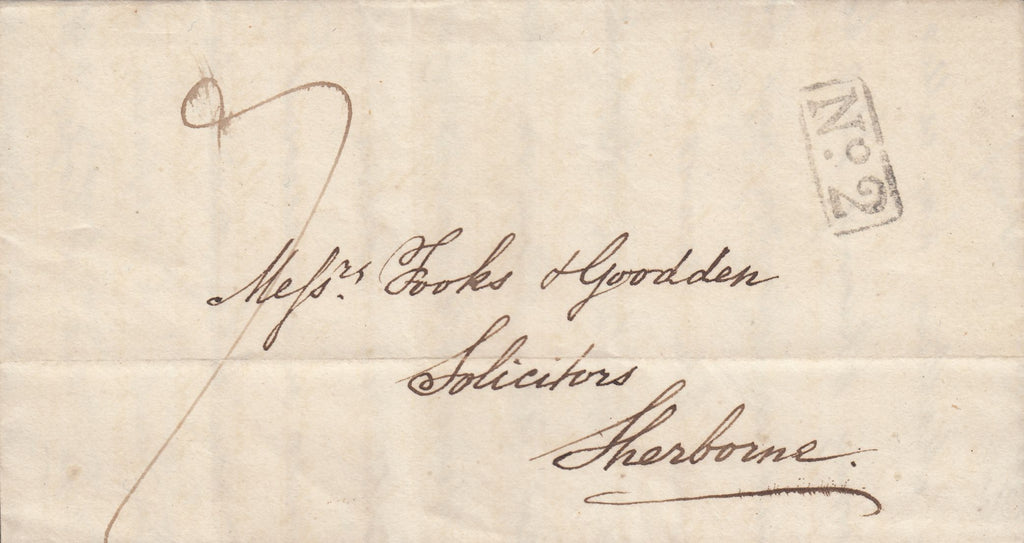 7
No. 2
Messrs. Fooks & Goodden
Solicitors
Sherborne.